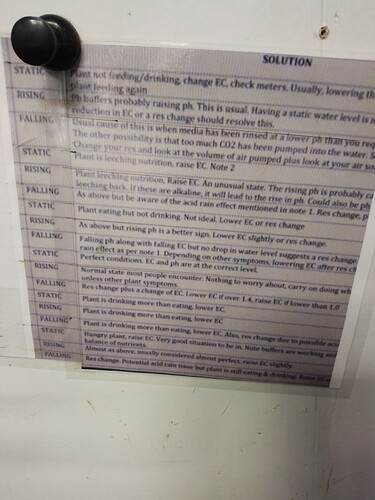 SOLUTION
STATIC Plant not feeding/drinking, change EC, check meters. Usually, lowering th
plant feeding again
RISING Ph buffers probably raising ph. This is usual. Having a static water level is n
reduction in EC or a res change should resolve this.
FALLING Usual cause of this is when media has been rinsed at a lower ph than you req
The other possibility is that too much CO2 has been pumped into the water. S
Change your res and look at the volume of air pumped plus look at your air so
STATIC Plant is leeching nutrition, raise EC. Note 2
RISING Plant leeching nutrition, Raise EC. An unusual state. The rising ph is probably ca
leeching back. If these are alkaline, it will lead to the rise in ph. Could also be ph
FALLING As above but be aware of the acid rain effect mentioned in note 1. Res change, p
STATIC Plant eating but not drinking. Not ideal. Lower EC or res change
RISING As above but rising ph is a better sign. Lower EC slightly or res change.
FALLING Falling ph along with falling EC but no drop in water level suggests a res change
rain effect as per note 1. Depending on other symptoms, lowering EC after res ch
STATIC Perfect conditions. EC and ph are at the correct level.
RISING Normal state most people encounter. Nothing to worry about, carry on doing wh
unless other plant symptoms.
FALLING Res change plus a change of EC. Lower EC if over 1.4, raise EC if lower than 1.0
STATIC Plant is drinking more than eating, lower EC.
RISING Plant is drinking more than eating, lower EC
FALLING Plant is drinking more than eating, lower EC. Also, res change due to possible aci
STATIC Hungry plant, raise EC. Very good situation to be in. Note buffers are working and
balance of nutrients.
RISING Almost as above, usually considered almost perfect, raise EC slightly.
FALLING Res change. Potential acid rain issue but plant is still eating & drinking. Raise EC